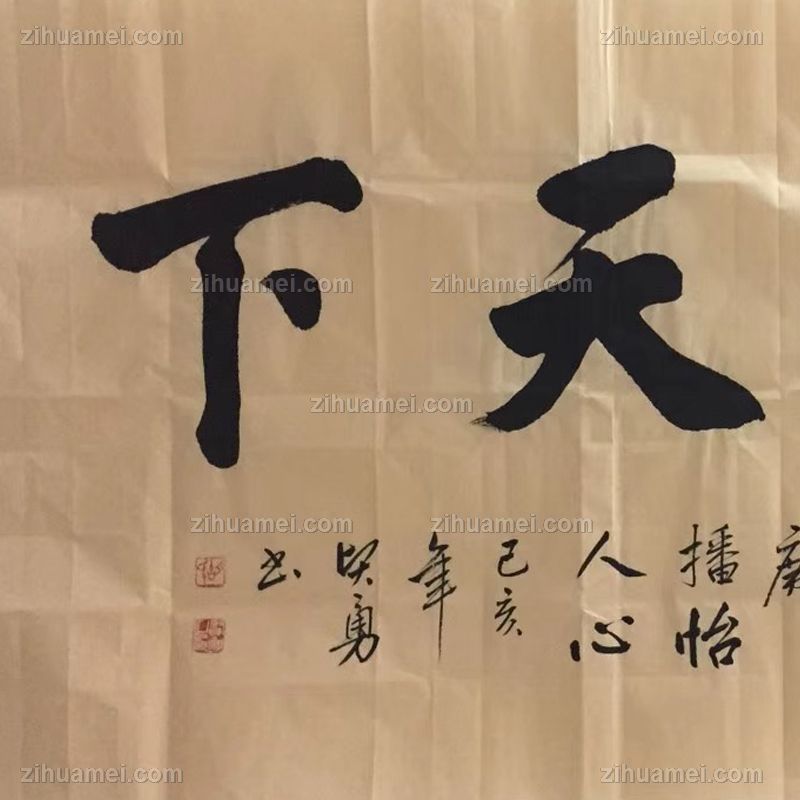 天下
播怡
人心
己亥
年
勇
书
zihuamei.com
zihuamei.com
zihuamei.com
zihuamei.com
zihuamei.com
zihuamei.com
zihuamei.com
zihuamei.com
zihuamei.com
zihuamei.com